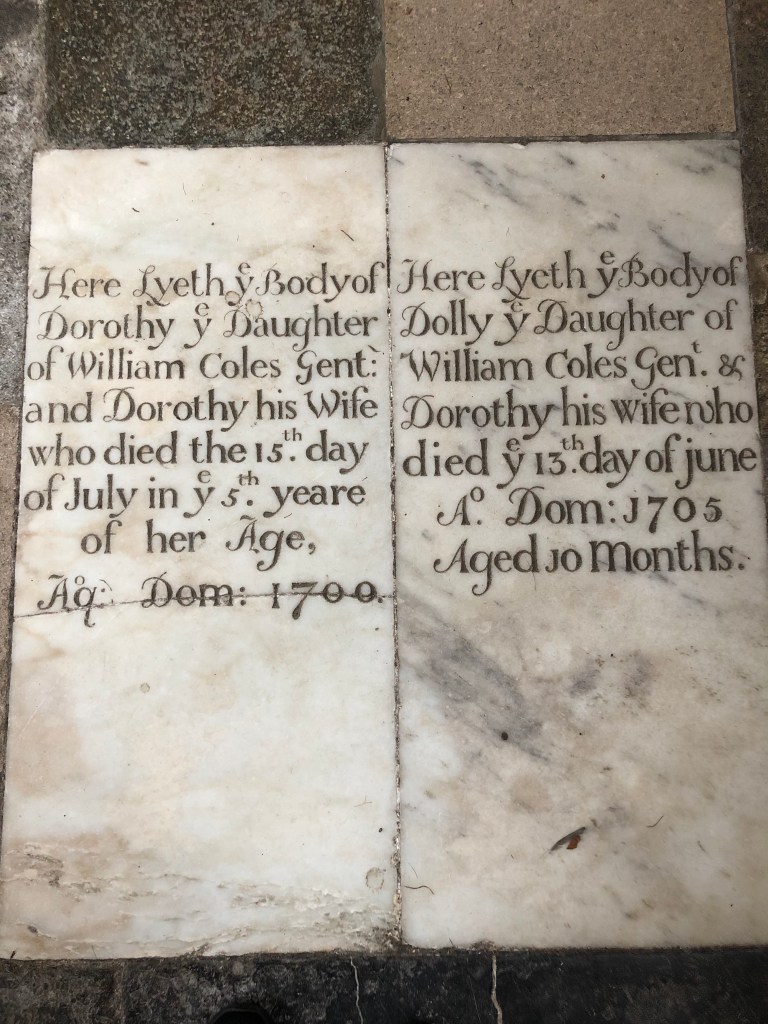 Here Lyeth yͤ Body of
Dorothy yͤ Daughter
of William Coles Gent:
and Dorothy his Wife
who died the 15.ᵗʰ day
of July in yͤ 5.ᵗʰ yeare
of her Age,
Aoq: Dom: 1700.
Here Lyeth yͤ Body of
Dolly yͤ Daughter of
William Coles Gen.ᵗ &
Dorothy his wife who
died yͤ 13.ᵗʰ day of june
Aº. Dom: 1705
Aged 10 Months.